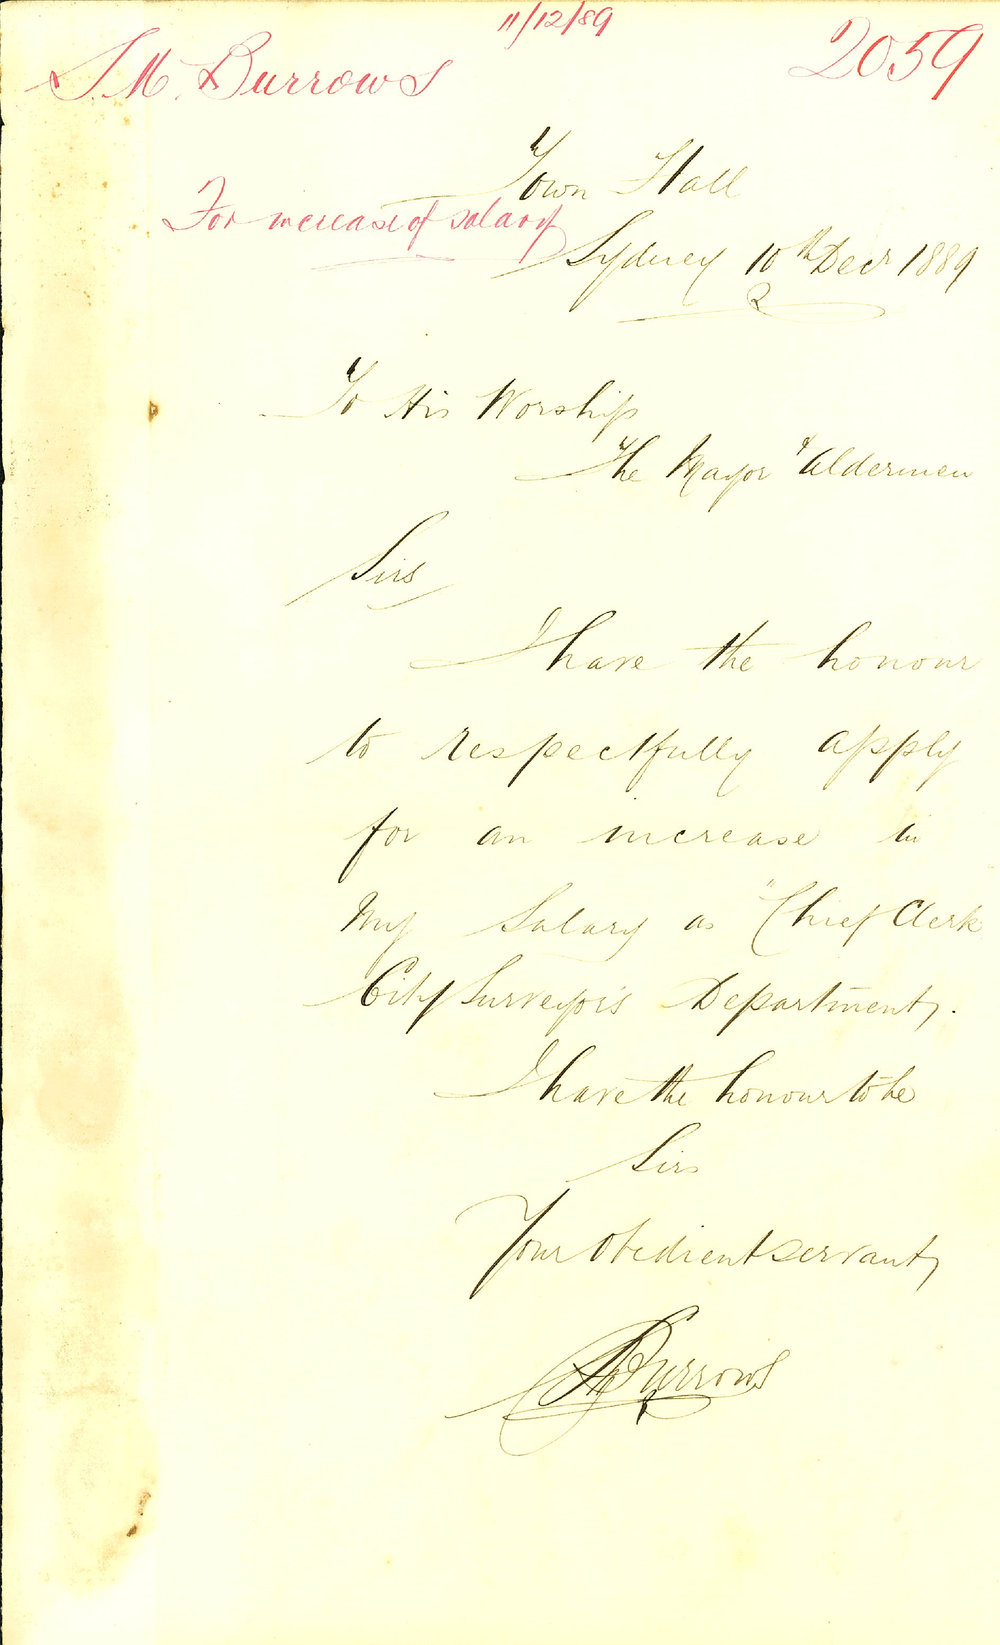 11/12/89
2059
S.M. Burrows
Town Hall
For increase of salary
Sydney 10th Decr 1889
To His Worship
The Mayor & Aldermen
Sirs
I have the honour
to respectfully apply
for an increase in
my Salary as "Chief Clerk
City Surveyor's Department".
I have the honour to be
Sirs
Your obedient servant
SM Burrows